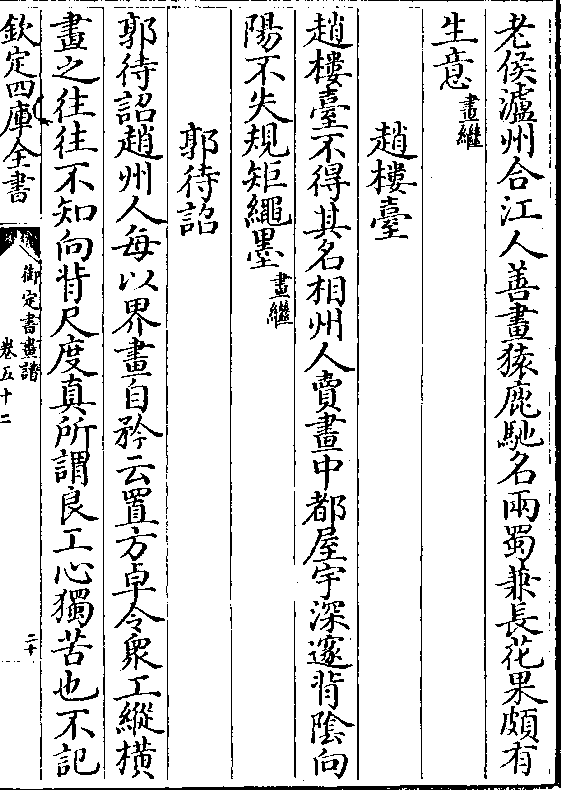 老侯瀘州合江人善畫猿鹿馳名兩蜀兼長花果頗有
生意畫繼
趙樓臺
趙樓臺不得其名相州人賣畫中都屋宇深邃背陰向
陽不失規矩繩墨畫繼
郭待詔
郭待詔趙州人每以界畫自矜云置方卓令衆工縱橫
畫之往往不知向背尺度真所謂良工心獨苦也不記
欽定四庫全書
御定書畫譜
卷五十二
二十